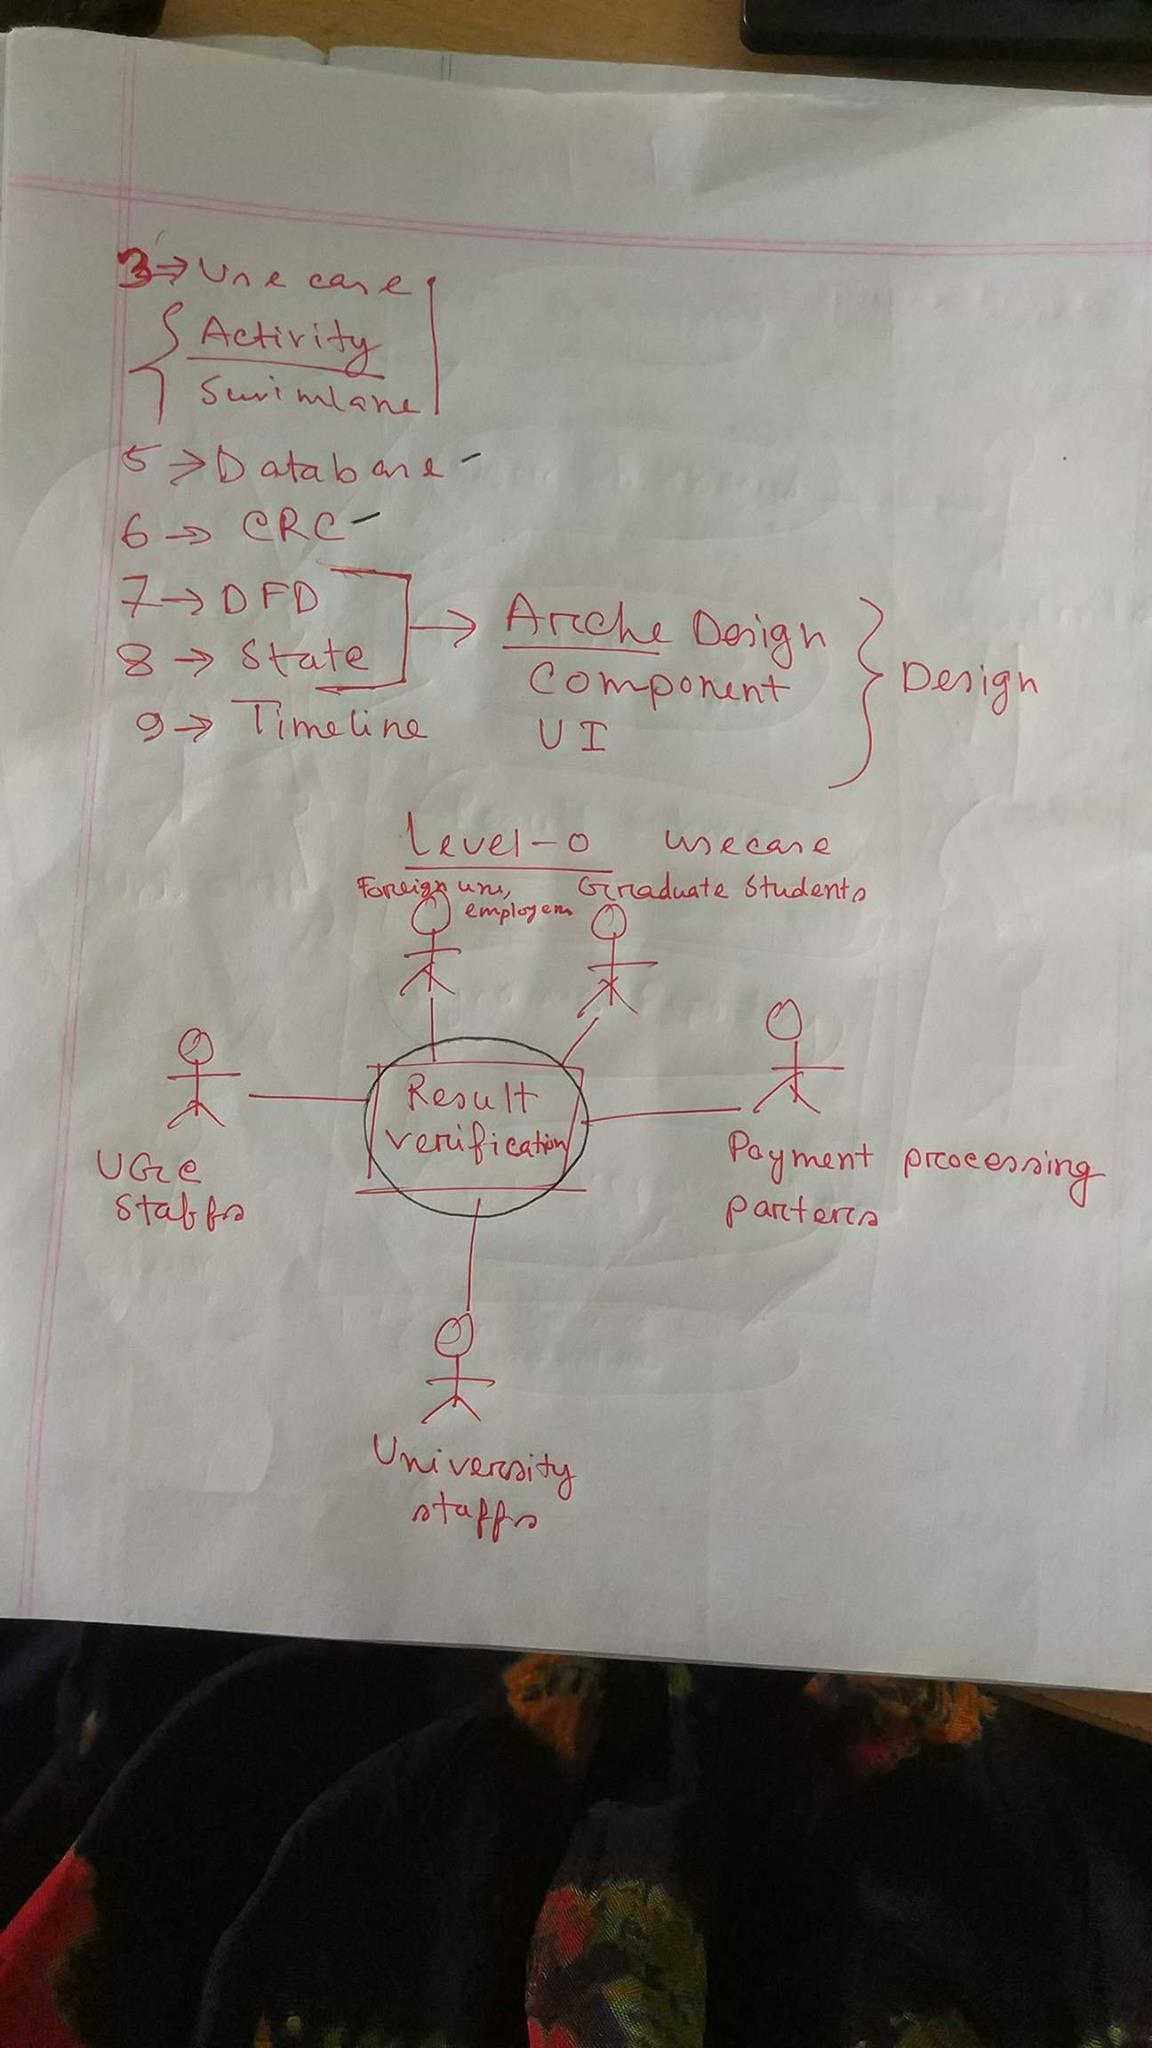 3 → Use case
Activity
Swimlane
5 → Database -
6 → CRC -
7 → DFD
8 → State
9 → Timeline
→ Arche Design
Component
UI
Design
Level-0 usecase
Foreign uni,
employers
Graduate Students
Result
verification
UGC
staffs
Payment processing
parters
University
staffs